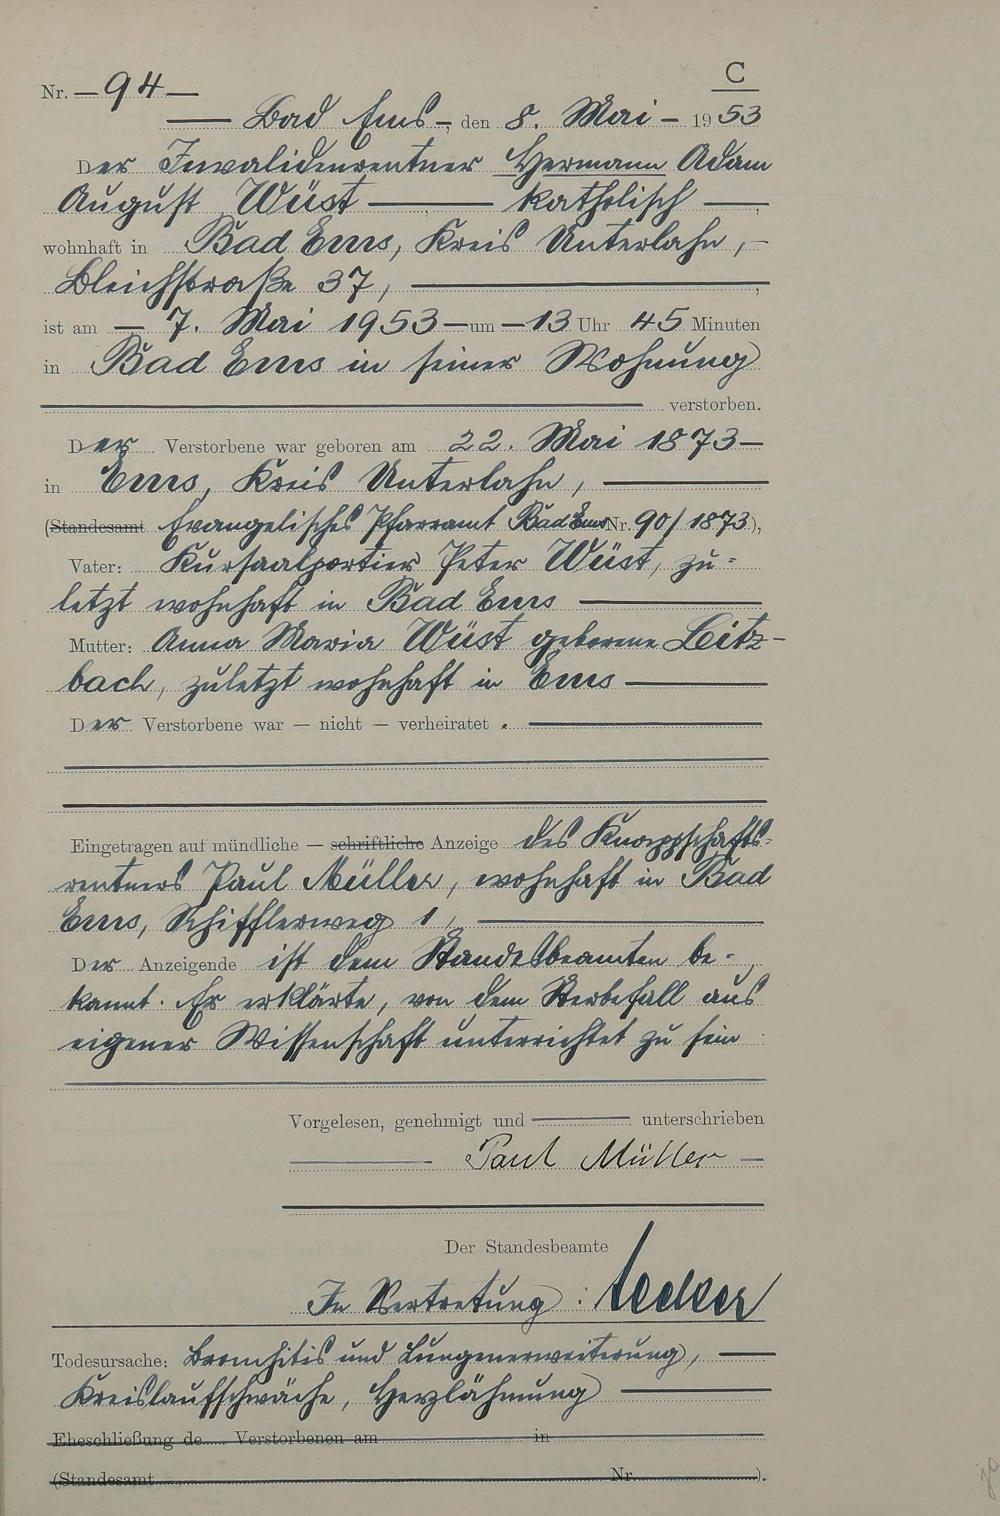 C
Nr. — 94 —
— Bad Ems —, den 8. Mai — 1953
Der Invalidenrentner Hermann Adam
August Wüst — katholisch —,
wohnhaft in Bad Ems, Kreis Unterlahn, —
Bleichstraße 37, —,
ist am — 7. Mai 1953 — um — 13 Uhr 45 Minuten
in Bad Ems in seiner Wohnung
— verstorben.
Der Verstorbene war geboren am 22. Mai 1873 —
in Ems, Kreis Unterlahn, —
(Standesamt Evangelisches Pfarramt Bad Ems Nr. 90/1873),
Vater: Kursaalportier Peter Wüst, zu=
letzt wohnhaft in Bad Ems —
Mutter: Anna Maria Wüst geborene Leitz-
bach, zuletzt wohnhaft in Ems —
Der Verstorbene war — nicht — verheiratet. —
Eingetragen auf mündliche — schriftliche Anzeige des Knappschafts-
rentners Paul Müller, wohnhaft in Bad
Ems, Schifflerweg 1, —
Der Anzeigende ist dem Standesbeamten be=
kannt. Er erklärte, von dem Sterbefall aus
eigener Wissenschaft unterrichtet zu sein
Vorgelesen, genehmigt und — unterschrieben
— Paul Müller —
Der Standesbeamte
In Vertretung:
Todesursache: Bronchitis und Lungenerweiterung, —
Kreislaufschwäche, Herzlähmung —
Eheschließung de Verstorbenen am in
(Standesamt Nr. ).